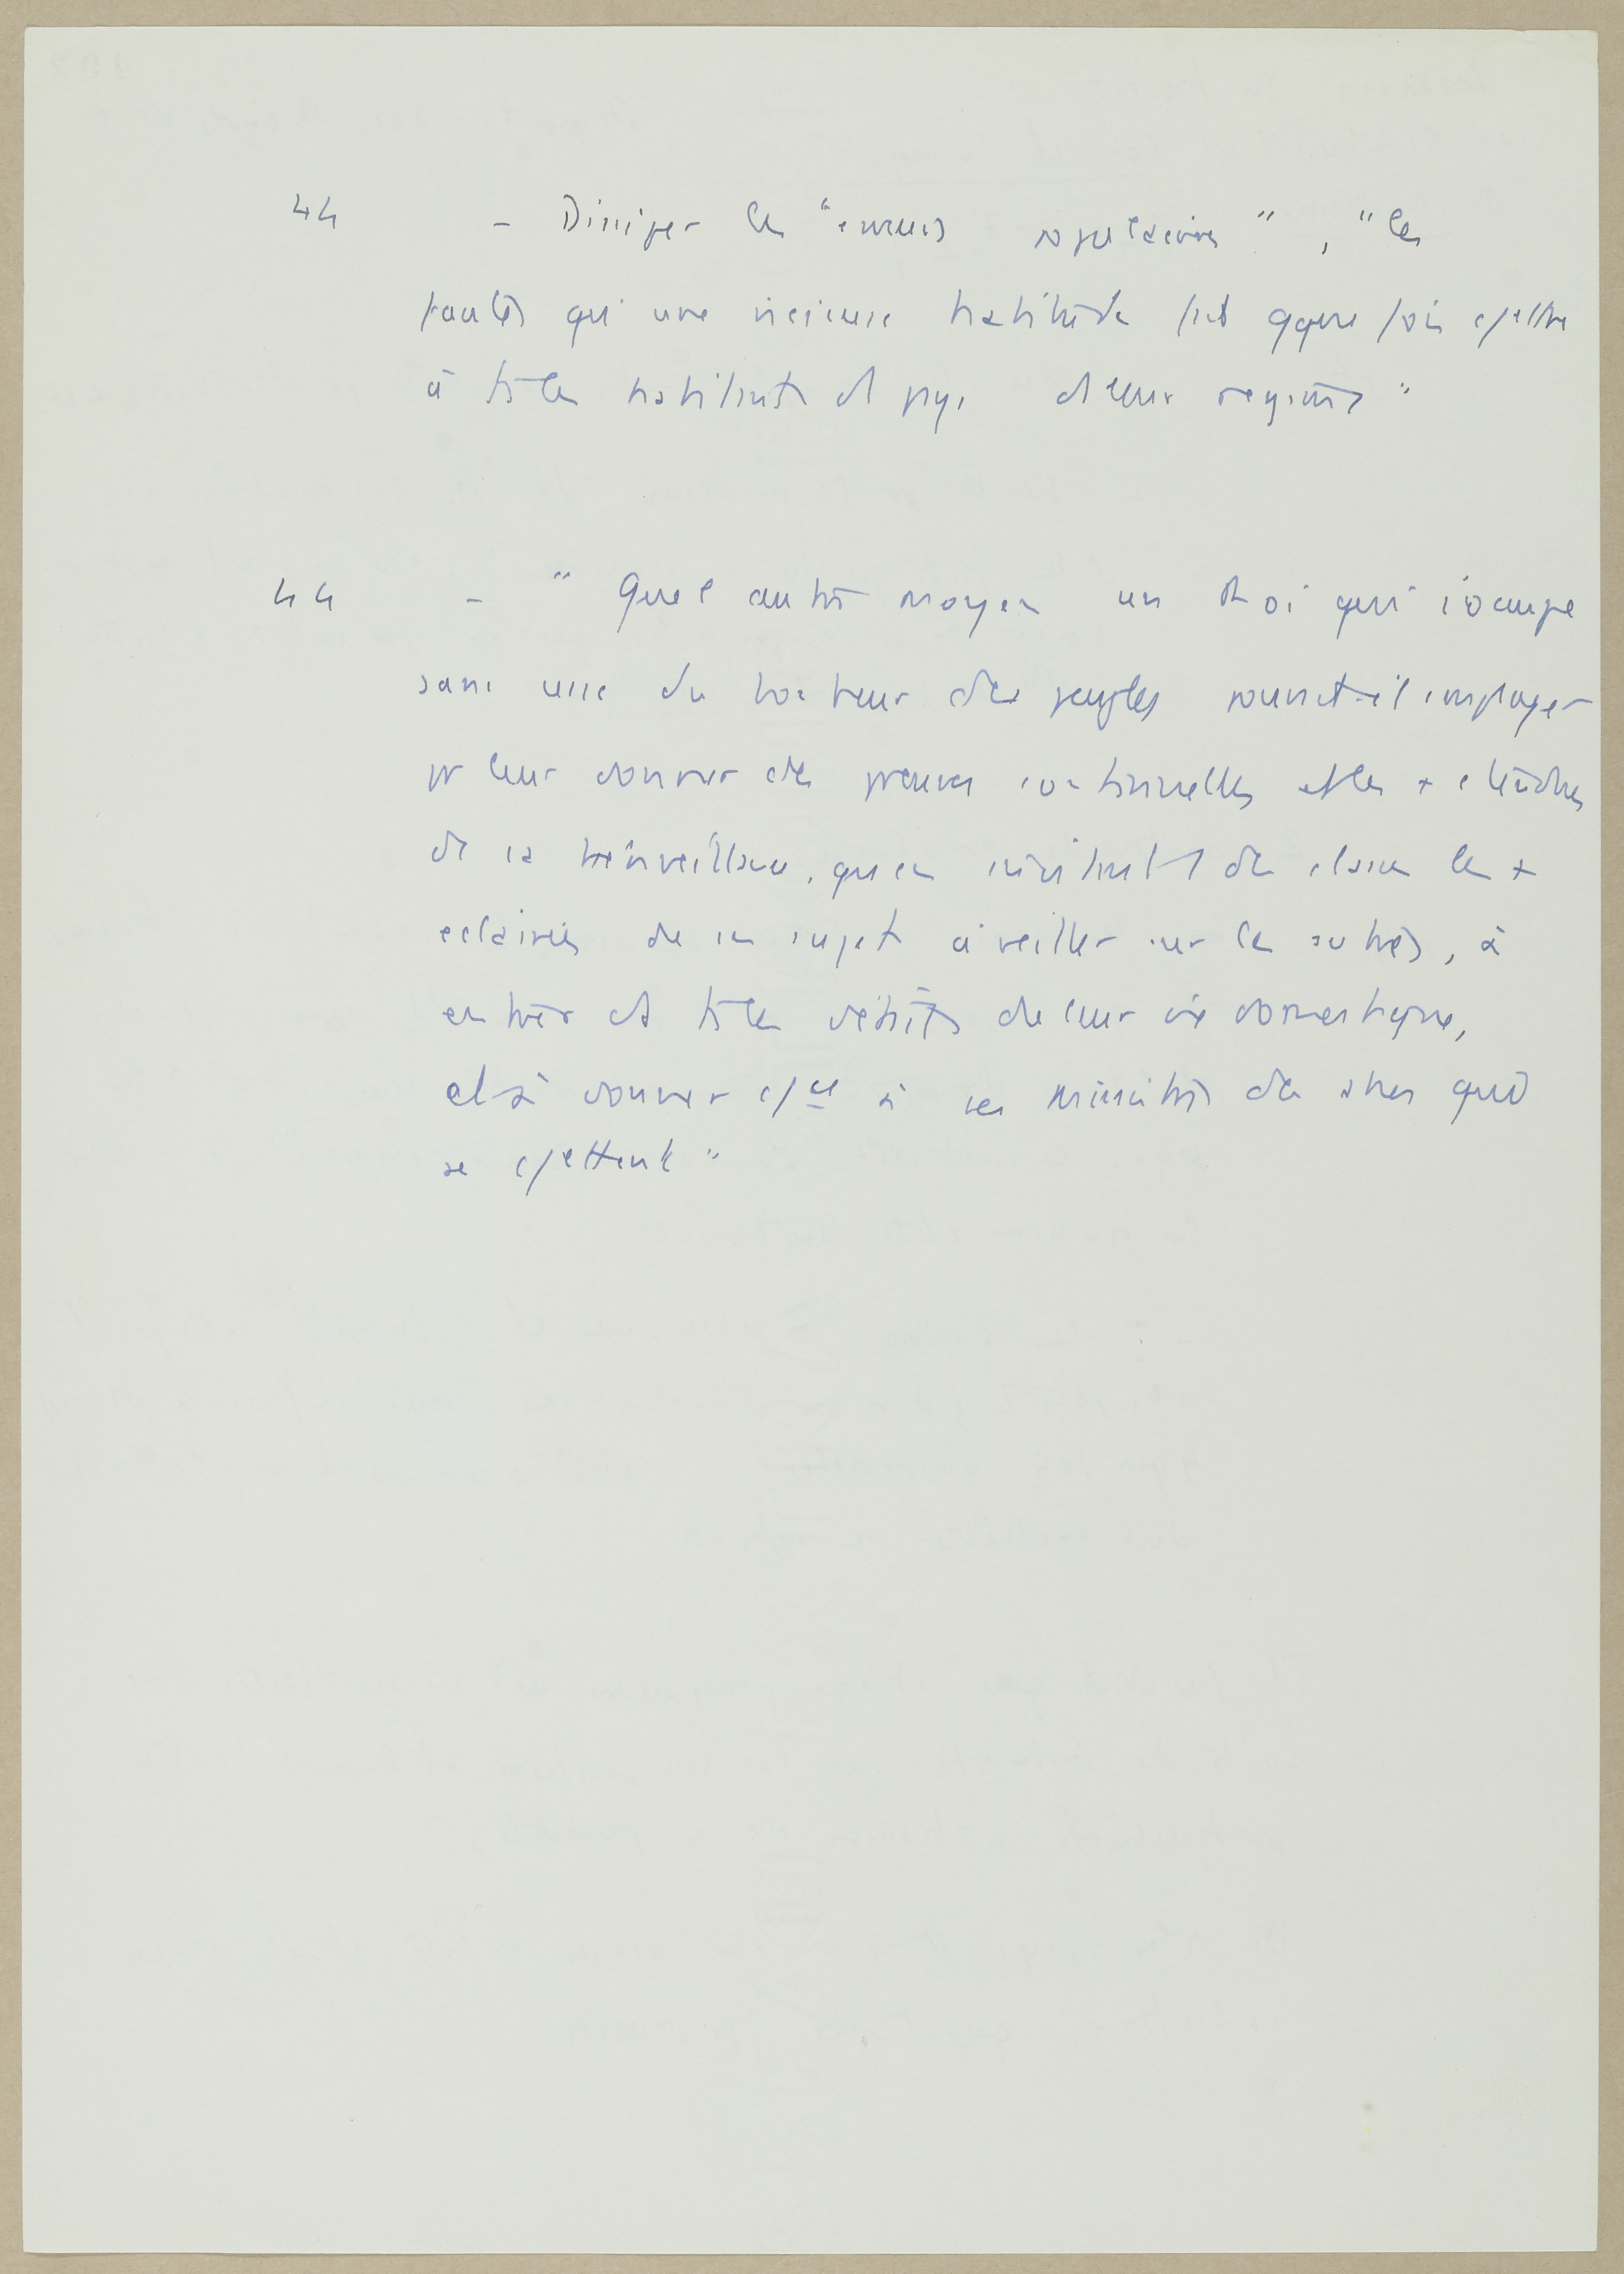 44 - Dissiper les "erreurs populaires", "les
fautes qu'une vicieuse habitude fait qque fois cettre
à ts les habitants du pays de leur région"
44 - "Quel autre moyen un Roi qui s'occupe
sans cesse du bonheur des peuples pourrait-il employer
pr leur donner des preuves continuelles et les + étendues
de sa bienveillance, qu'en invitant des classes les +
éclairées de ses sujets à veiller sur les autres, à
entrer ds ts les détails de leur vie domestique,
et à donner à ses ministres des
se cettent"